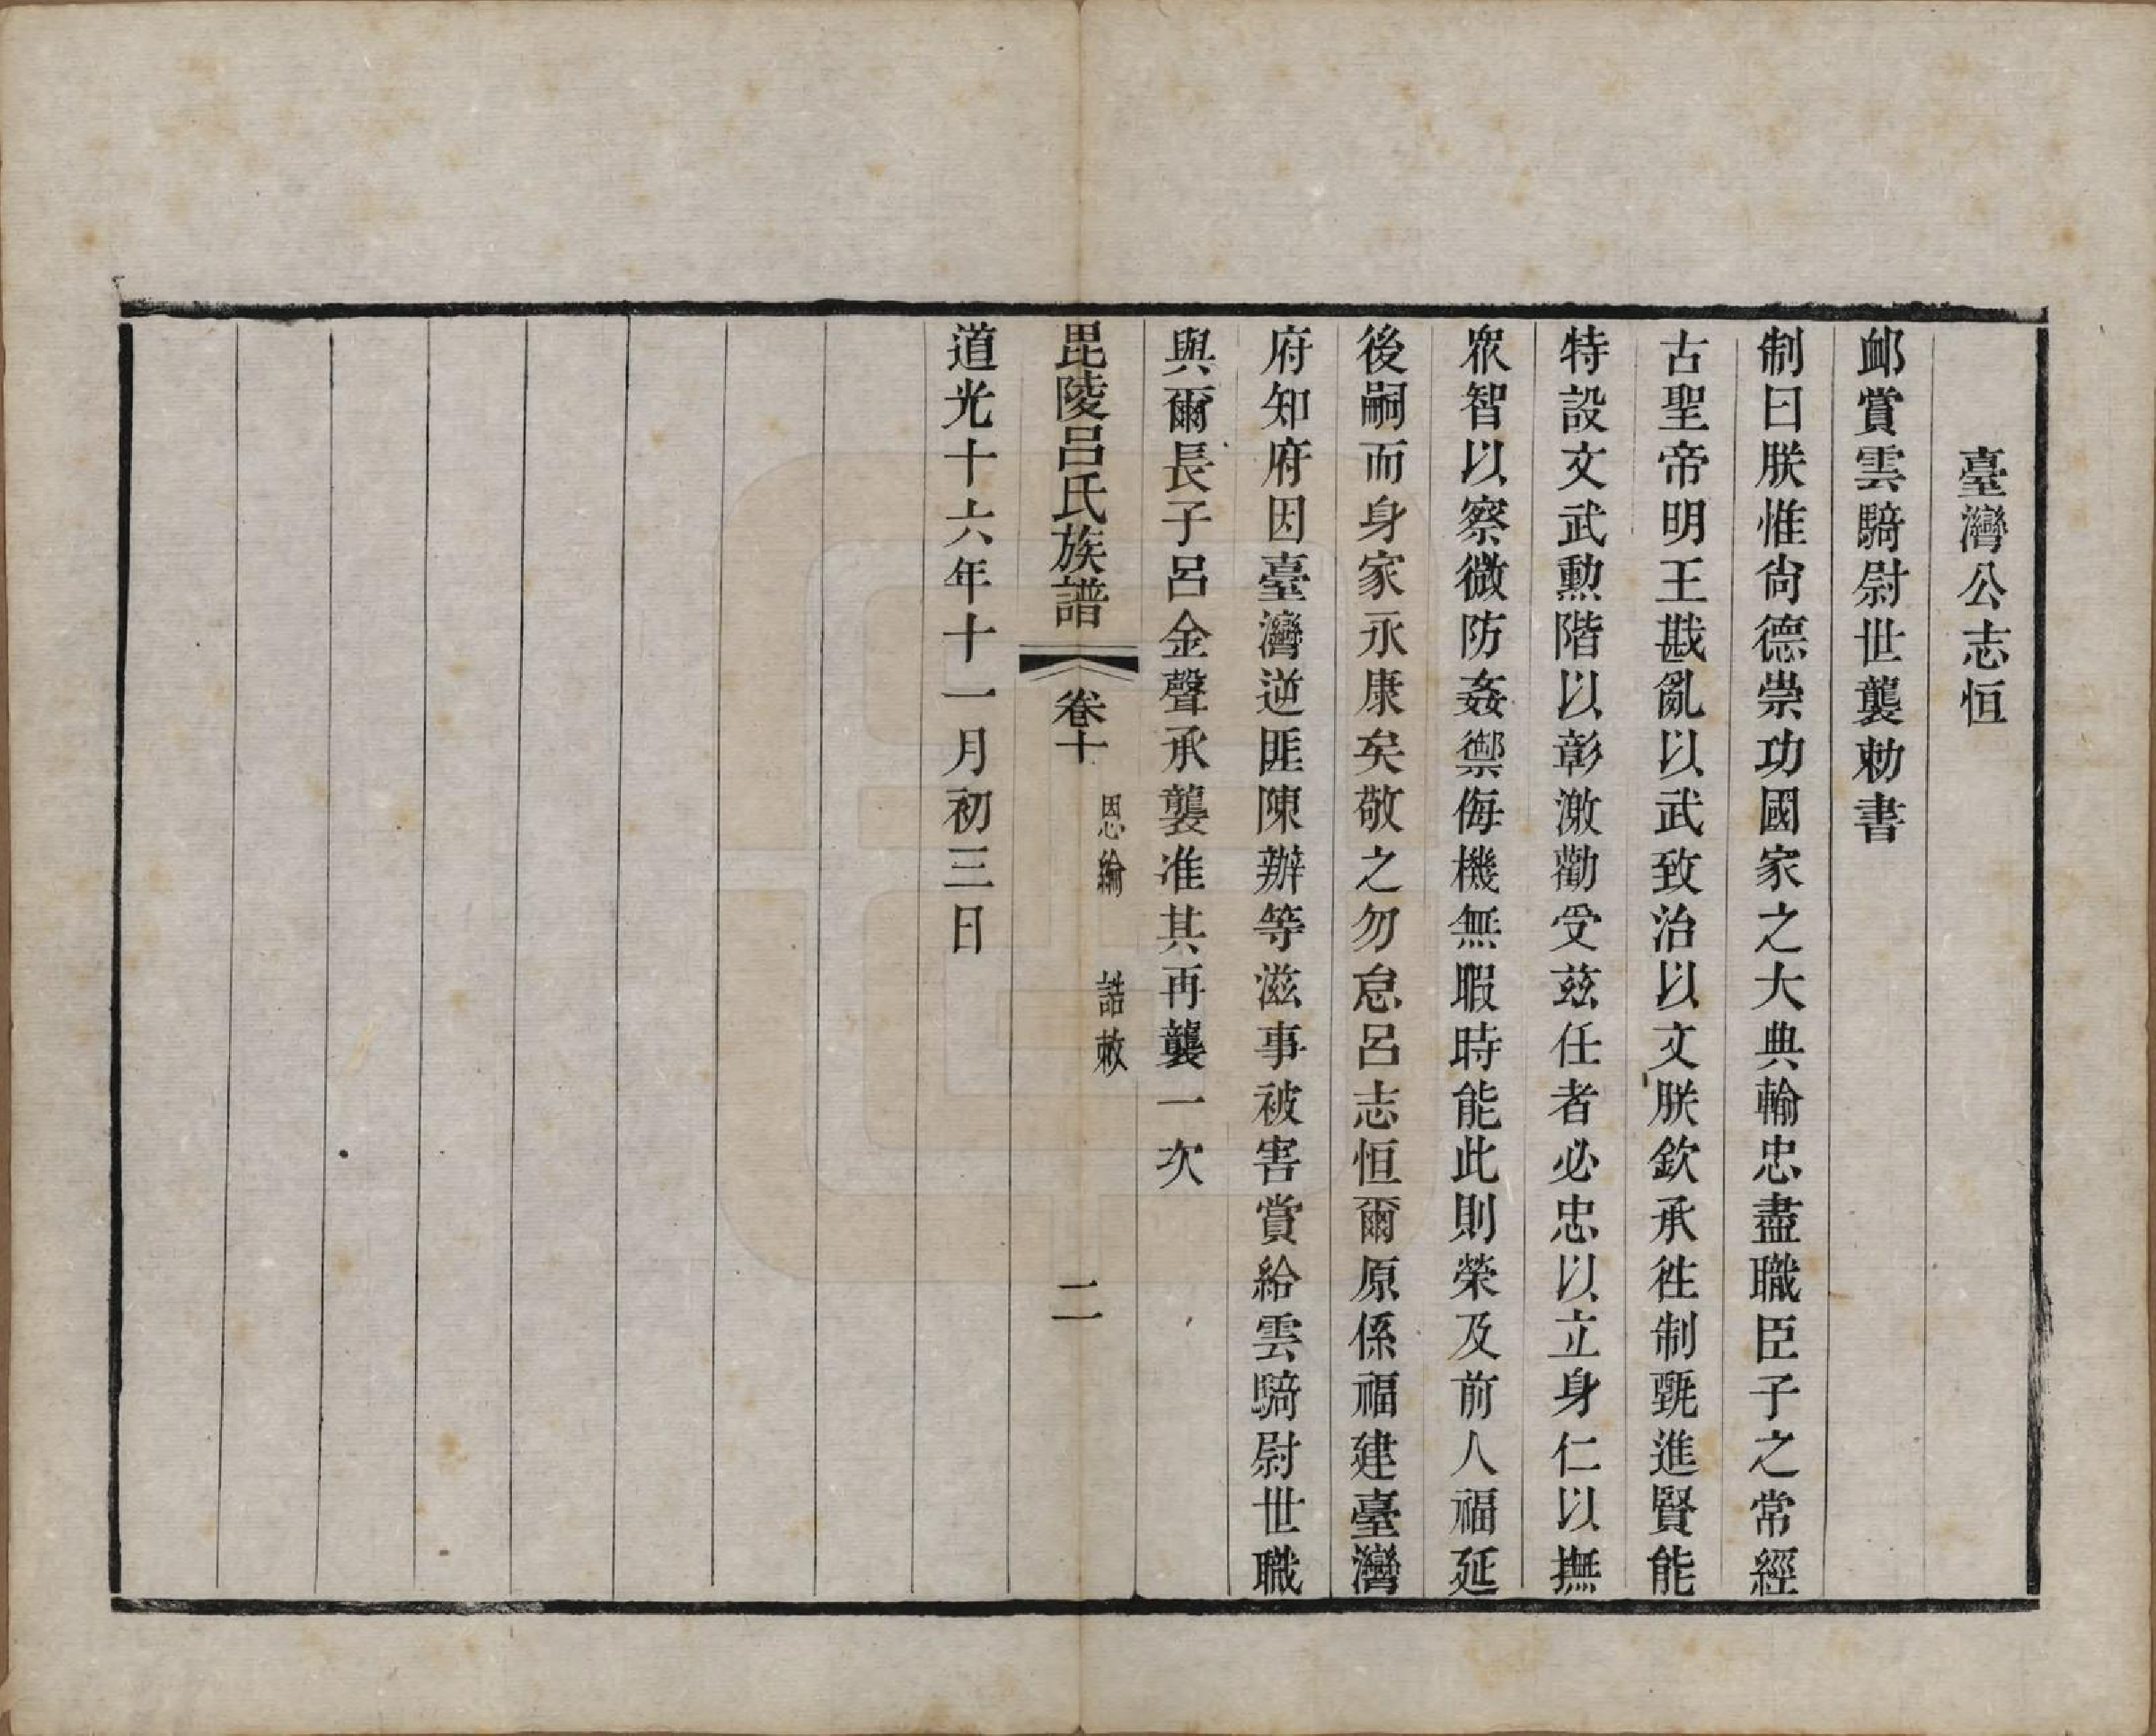 臺灣公志恒
䘏賞雲騎尉世襲勅書
制曰朕惟尙德崇功國家之大典輸忠盡職臣子之常經
古聖帝明王戡亂以武致治以文朕欽承徃制甄進賢能
特設文武勲階以彰激勸受茲任者必忠以立身仁以撫
衆智以察微防姦禦侮機無暇時能此則榮及前人福延
後嗣而身家永康矣敬之勿怠呂志恒爾原係福建臺灣
府知府因臺灣逆匪陳辦等滋事被害賞給雲騎尉世職
與爾長子呂金聲承襲准其再襲一次
毘陵呂氏族譜 卷十 恩綸 誥敕 二
道光十六年十一月初三日